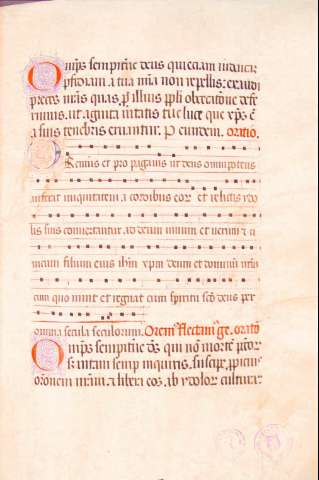 Om̅ps sempit̅ne deus qui etiam iudaicā
pfidiam a tua mīa non repellis: exaudi
preces nr̅as quas p̱ illius pp̅li obcecatione defe
rimus. ut agnita uitatis tue luce que xp̅s ē
a suis tenebris eruantur. P eundem. oratio.
Oremus et pro paganis ut deus omnipotens
auferat iniquitatem a cordibus eor et relictis ydo
lis suis conuertantur ad deum uiuum et uerum ⁊ u
nicum filium eius ihm̅ xpm deum et dominū nr̅m
cum quo uiuit et regnat cum spiritu scō deus per
omnia secula seculorum. Orem⁹ flectam⁹ ge. oratō
Om̅ps sempit̅ne dȩ̅s qui nō mortē pctor̄
s; uitam semp inquiris. suscipe ppicius
orōnem nr̅am. ⁊ libera eos. ab ydolor̄ cultura: